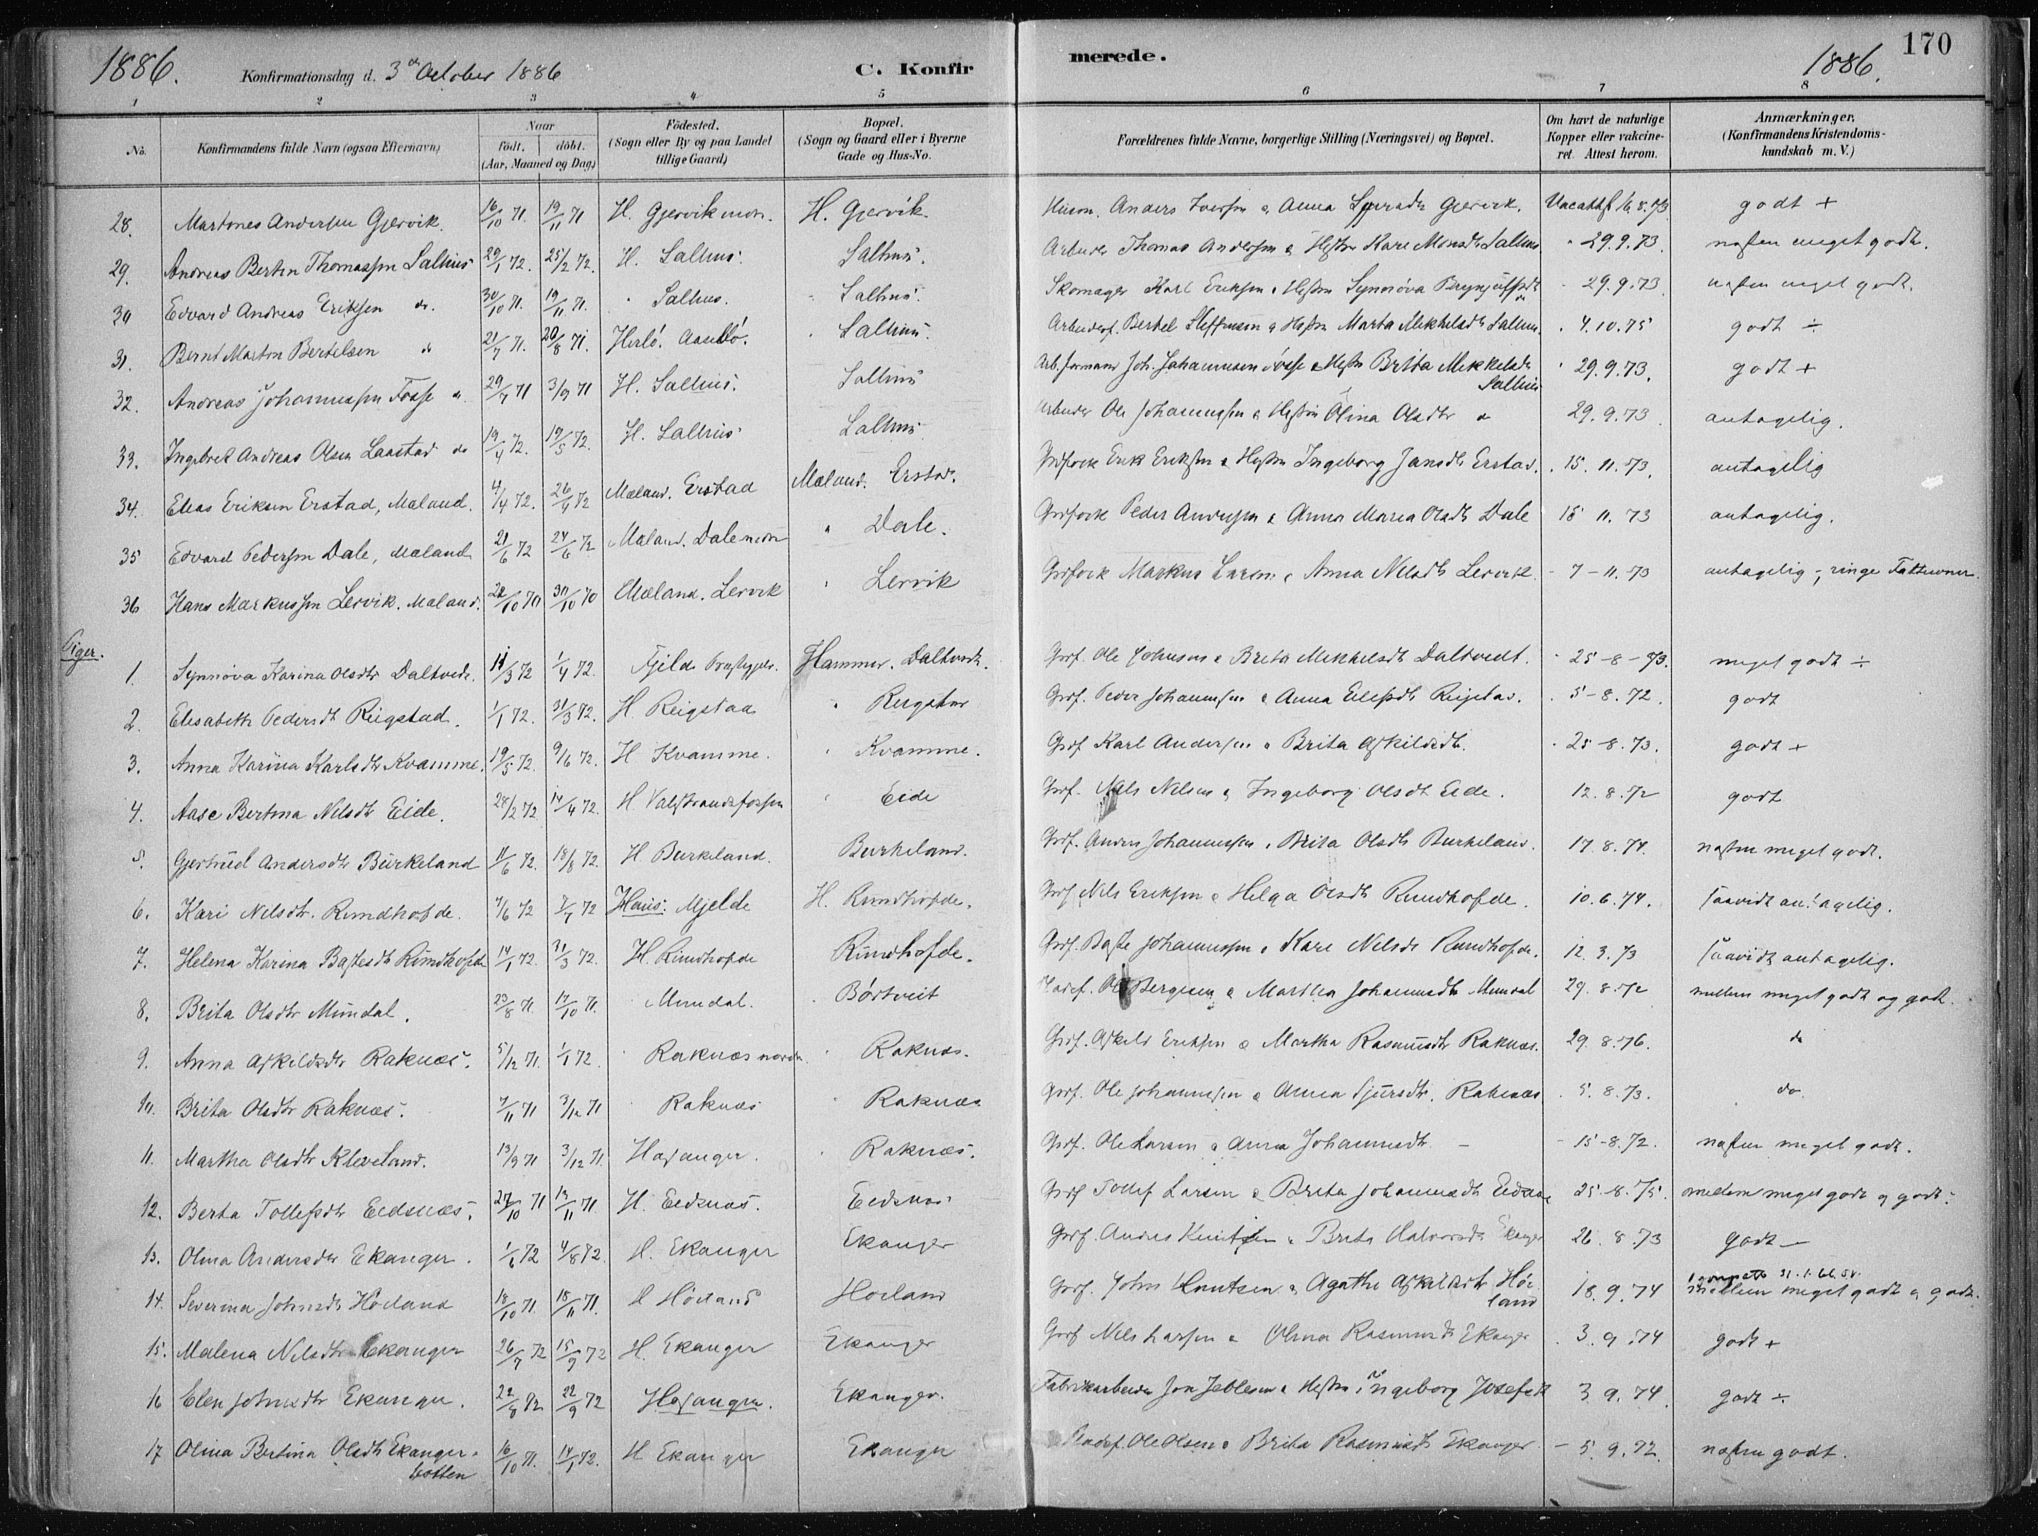 1886. Konfirmationsdag d. 3die October 1886 C. Konfir merede. 1886. 170
1 2 3 4 5 6 7 8
No. Konfirmandens fulde Navn (ogsaa Efternavn) Naar født. døbt. (Aar, Maaned og Dag) Fødested. (Sogn eller By og paa Landet tillige Gaard) Bopæl. (Sogn og Gaard eller i Byerne Gade og Hus-No. Forældrenes fulde Navne, borgerlige Stilling (Næringsvei) og Bopæl. Om havt de naturlige Kopper eller vakcineret. Attest herom. Anmærkninger. (Konfirmandens Kristendomskundskab m. V.)
28. Martines Andersen Gjervik. 16/10 71. 19/11 71 H. Gjervik H. Gjervik Anders Iversen & Anna Gjervik. 16.8.73 godt +
29. Andreas Bertin Thomassen Salhus 29/1 72. 25/2 72. H. Salhus. Salhus. Arbeider Thomas Andersen & Hustru Kari Monsdtr Salhus " 29.9.73. næsten meget godt.
30 Edvard Andreas Eriksen do. 30/10 71. 19/11 71. " Salhus. " Salhus. Skomager Karl Eriksen & Hustru Synnöva " 29.9.73. næsten meget godt.
31. Bernt Martin Bertelsen do 21/7 71. 20/8 71. Herlö. " Salhus. Bertel Steffensen & Hustru Marta Mikkelsdtr Salhus. " 4.10.75 godt ÷
32. Andreas Johannessen Fosse do. 29/7 71 3/9 71 H. Salhus. Salhus Arb.formann Joh. Johannesen Fosse & Hustru Brita Mikkelsdtr Salhus " 29.9.73. godt +
33. Ingebret Andreas Olsen Laastad do 19/4 72. 19/5 72. H. Salhus. Salhus. Arbeider Ole Johannessen & Hustru Olina Olsdtr do 29.9.73 antagelig.
34. Elias Eriksen Erstad, Mæland. 4/4 72. 26/4 72 Mæland. Erstad Mæland. Erstad. Erik Eriksen & Hustru Ingeborg Jansdtr Erstad. . 15.11.73. antagelig
35 Edvard Pedersen Dale, Mæland 21/6 72 24/6 72 Mæland. Dale " Dale. Peder Andersen & Anna Maria Olsdtr Dale 15 11.73 antagelig.
36 Hans Markussen Lervik. Mæland. 10 70 30/10 70 Mæland. Lervik " Lervik Markus Larsen & Anna Nilsdtr Lervik - 7-11.73 antagelig -, ringe Fatteevner
Piger.
1. Synnöva Karina Olsdtr Daltvedt. 11/3 72 1/4 72. Fjeld Hammer. Daltvedt. Grdf. Ole Johnsen & Brita Mikkelsdtr Daltvedt. " 25-8-73. meget godt ÷
2 Elisabeth Pedersdtr Reigstad. 1/1 72. 31/3 72. H. Reigstad " Reigstad Grdf. Peder Johannessen & Anna Reigstad. . 5-8.72. godt
3. Anna Karina Karlsdtr Kvamme. 19/5 72. 9/6 72. H Kvamme. " Kvamme. Grdf Karl Andersen & Brita Askildsdtr. " 25-8.73. godt +
4. Aase Bertina Nilsdtr Eide. 28/2 72 14/4 72. H Valestrandsfossen " Eide Grdf. Nils Nilsen & Ingeborg Olsdtr Eide. 12.8.72 godt
5. Gjertrud Andersdtr Burkeland 11/6 72. 18/8 72. H Burkeland. Burkeland. Grdf. Anders Johannessen & Brita Olsdtr Burkeland. 17.8.74. næsten meget godt.
6. Kari Nilsdtr. Rundhofde. 4/6 72 7/7 72 Haus: Mjelde H. Rundhofde. Grdf. Nils Eriksen & Helga Olsdtr Rundhofde. 10.6.74. saavidt antagelig.
7. Helena Karina Bastesdtr Rundhofde 14/1 72. 31/3 72. H. Rundhofde Rundhofde. Grdf. Baste Johannessen & Kari Nilsdtr Rundhofde. 12.3.73 saavidt antagelig.
8. Brita Olsdtr Mundal. 23/8 71. 17/10 71. " Mundal. " Börtveit Ole Bergesen & Martha Johannesdtr Mundal 29.8.72 mellem meget godt og godt.
9. Anna Askildsdtr Raknæs. 5/12 71. 1/1 72. " Raknæs nordre " Raknæs. Grdf. Askild Eriksen & Martha Rasmusdtr Raknæs. 29.8.76. do
10. Brita Olsdtr Raknæs. 7/11 71 3/12 71 Raknæs " Raknæs Grdf. Ole Johannessen & Anna Sjursdtr. Raknæs . 5.8.73. do.
11. Martha Olsdtr Kleveland. 13/9 71 3/12 71. Hosanger. " Raknæs. Grdf. Ole Larsen & Anna Johannesdtr - - 15-8.72. næsten meget godt.
12. Berta Tollefsdtr Eidsnæs. 27/10 71 19/11 71. H. Eidsnæs. Eidsnæs. Grdf Tollef Larsen & Brita Johannesdtr Eidsnæs 25-8.75. mellem meget godt og godt.
13. Olina Andersdtr Ekanger. 1/6 72 4/8 72. H. Ekanger Ekanger Grdf. Anders Knutsen & Brita Halvorsdtr Ekanger 26.8.73 godt -
14. Severina Johnsdtr Höiland 18/10 71. 18/11 71. H Höiland Hoiland Grdf. John Knutsen & Agathe Askildsdtr Höiland 18.9.74 mellem meget godt og godt.
15. Malena Nilsdtr Ekanger 26/7 72 15/9 72 H. Ekanger Ekanger Grdf Nils Larsen & Olina Rasmusdtr Ekanger . 3.9.74 godt +
16 Elen Johnsdtr Ekanger. 22/8 72 22/9 72 Hosanger. Ekanger. Fabrikarbeider Jon & Hustru Ingeborg Josefsdtr 3.9.74. godt ÷
17 Olina Bertina Olsdtr Ekanger botten 16/10 71. 14/1 72. H Ekanger Ekanger Ole Olsen & Brita Rasmusdtr Ekanger - 5.9.72. næsten godt.